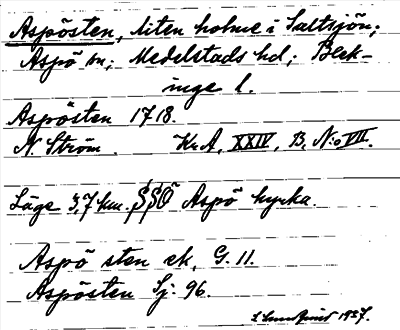 Aspösten, liten holme i Saltsjön;
Aspö sn; Medelstads hd; Blek-
inge l.
Aspösten 1718.
N. Ström. Kr.A, XXIV, B, N:o VII.
Läge 3,7 km. SSO Aspö kyrka.
Aspö sten ek, G. 11.
Aspösten Sj: 96.
1927.